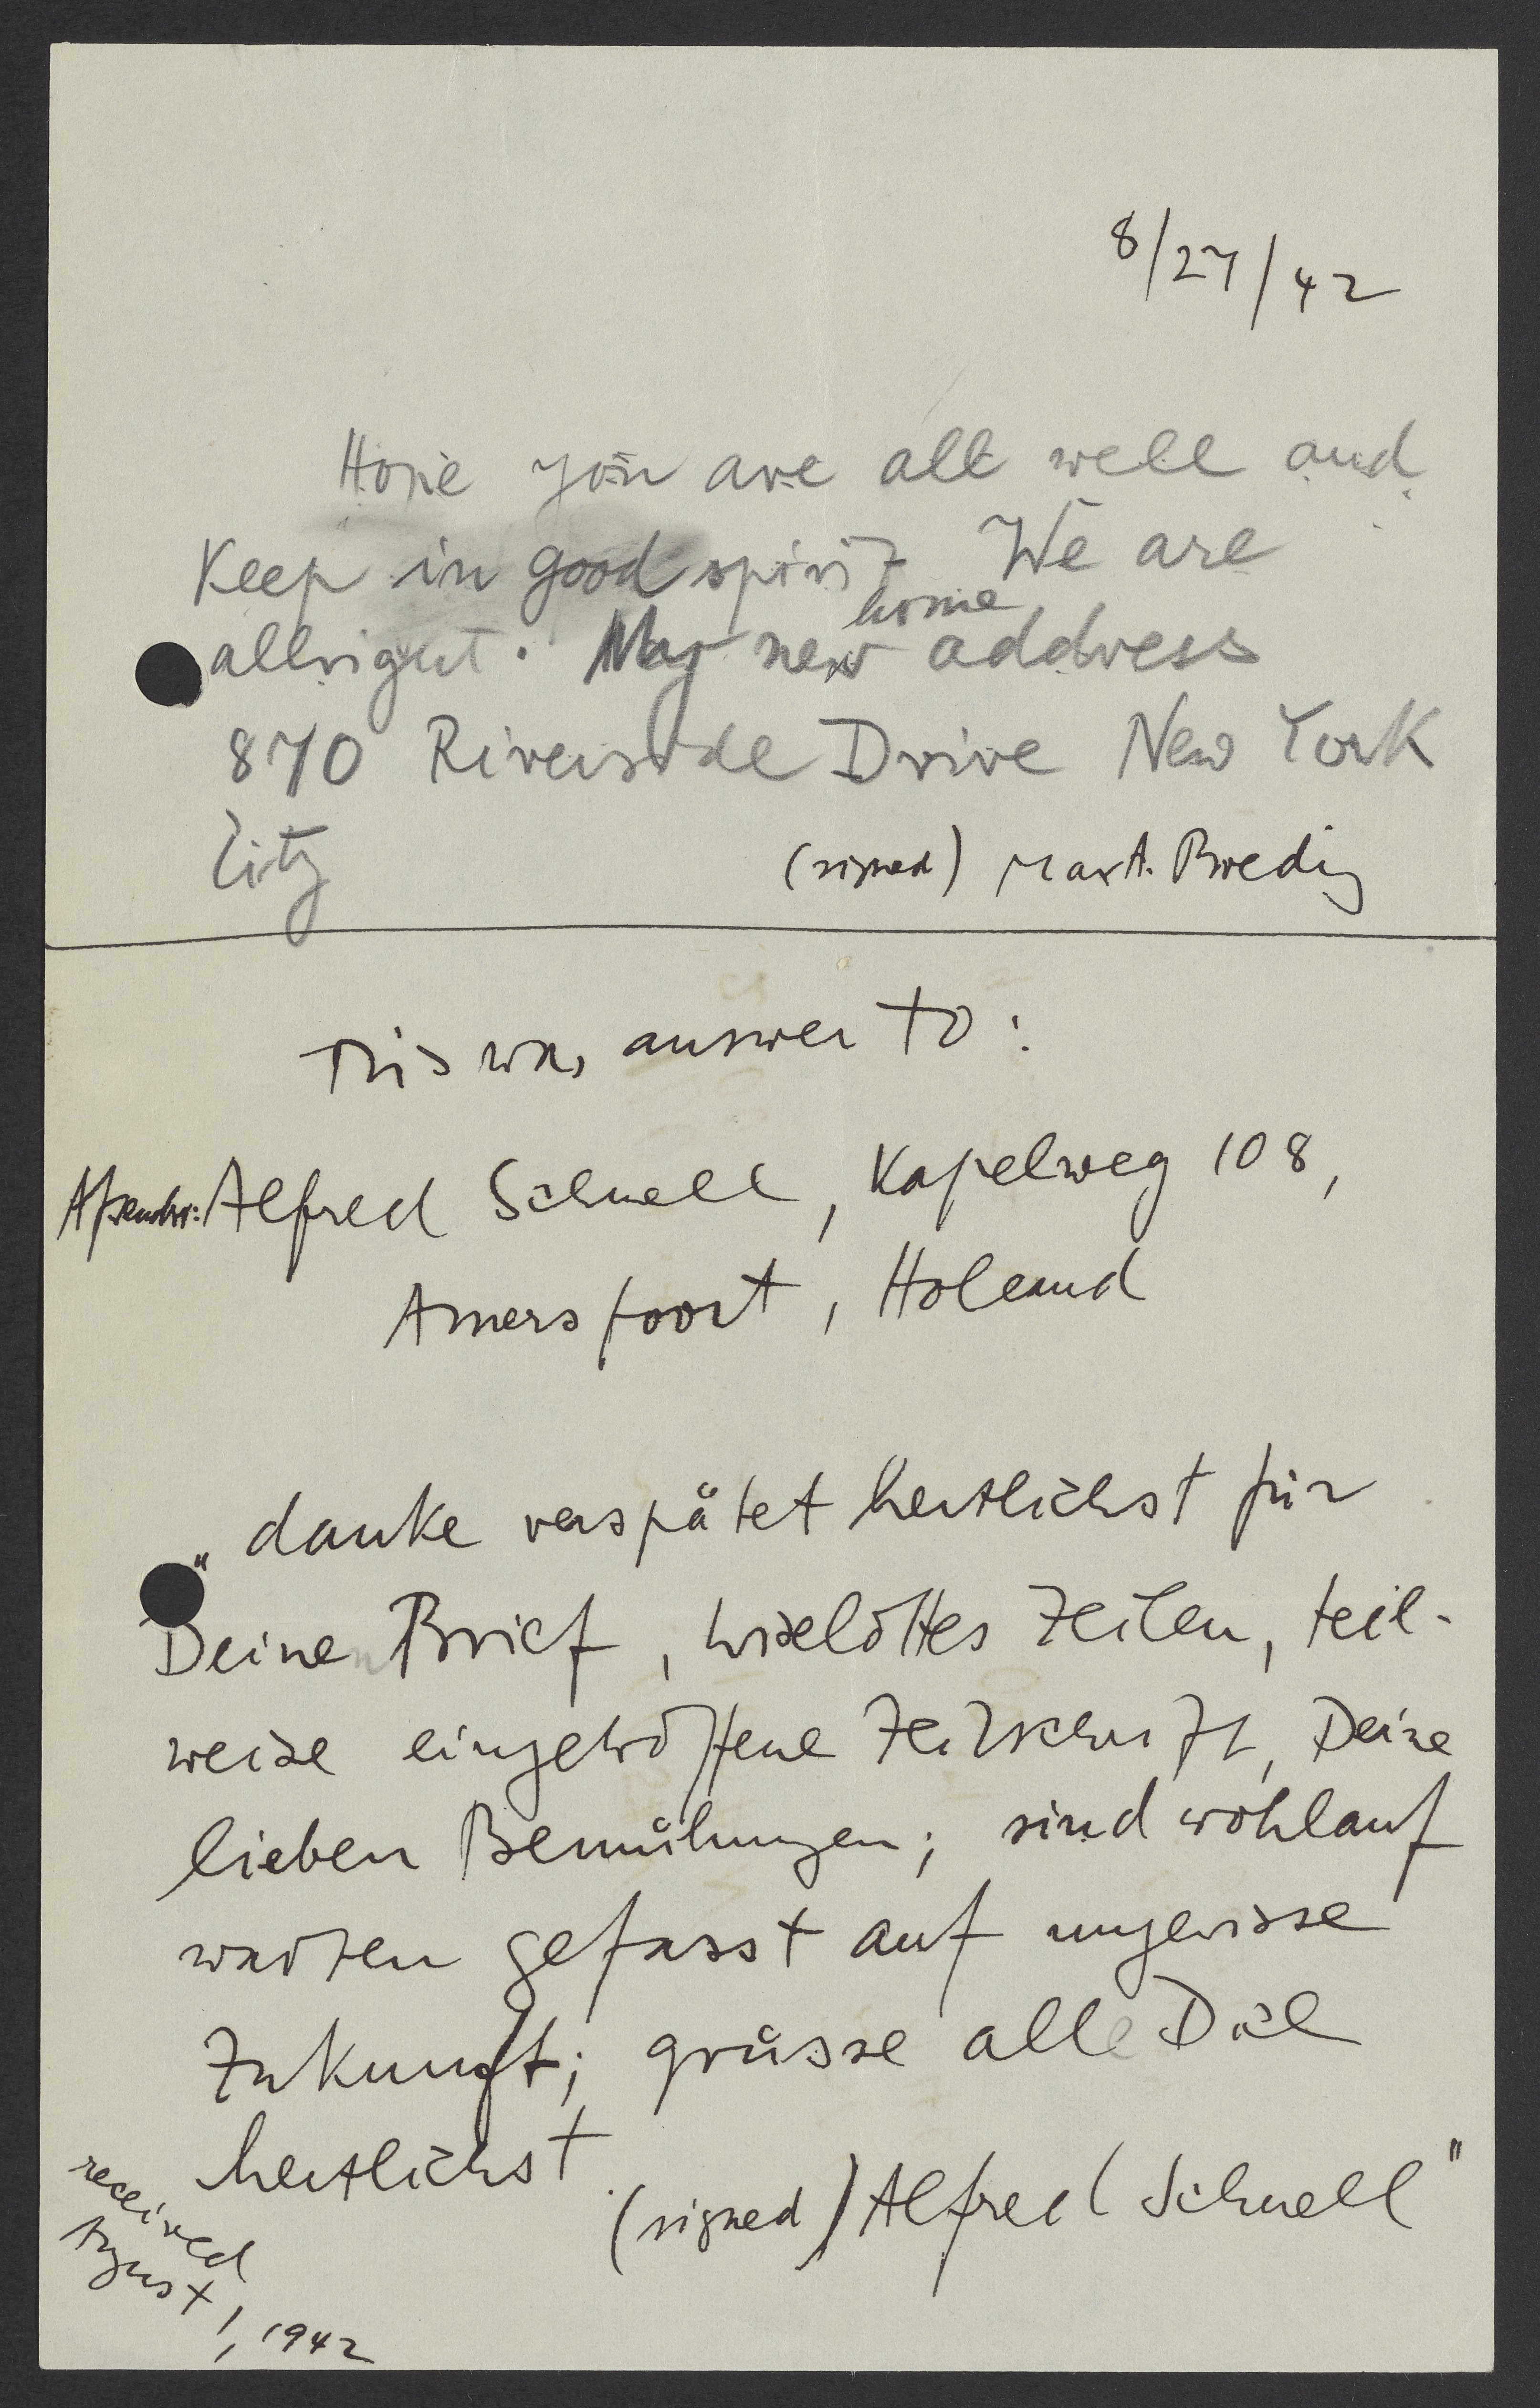 8/27/42
Hope you are all well and
Keep in good spirit We are
home
allright. My new address
870 Riverside Drive New York
City
(signed) Max A. Bredig
This was answer to:
Absender: Alfred Schnell, Kapelweg 108,
Amersfoort, Holland
"danke verspätet herzlichst für
Deinen Brief, Lieselottes Zeilen, teil-
weise eingetroffene Zeitschrift, Deine
lieben Bemühungen; sind wohlauf
warten gefasst auf ungewisse
Zukunft; grüsse alle Dich
herzlichst
(signed) Alfred Schnell"
received
August 1, 1942